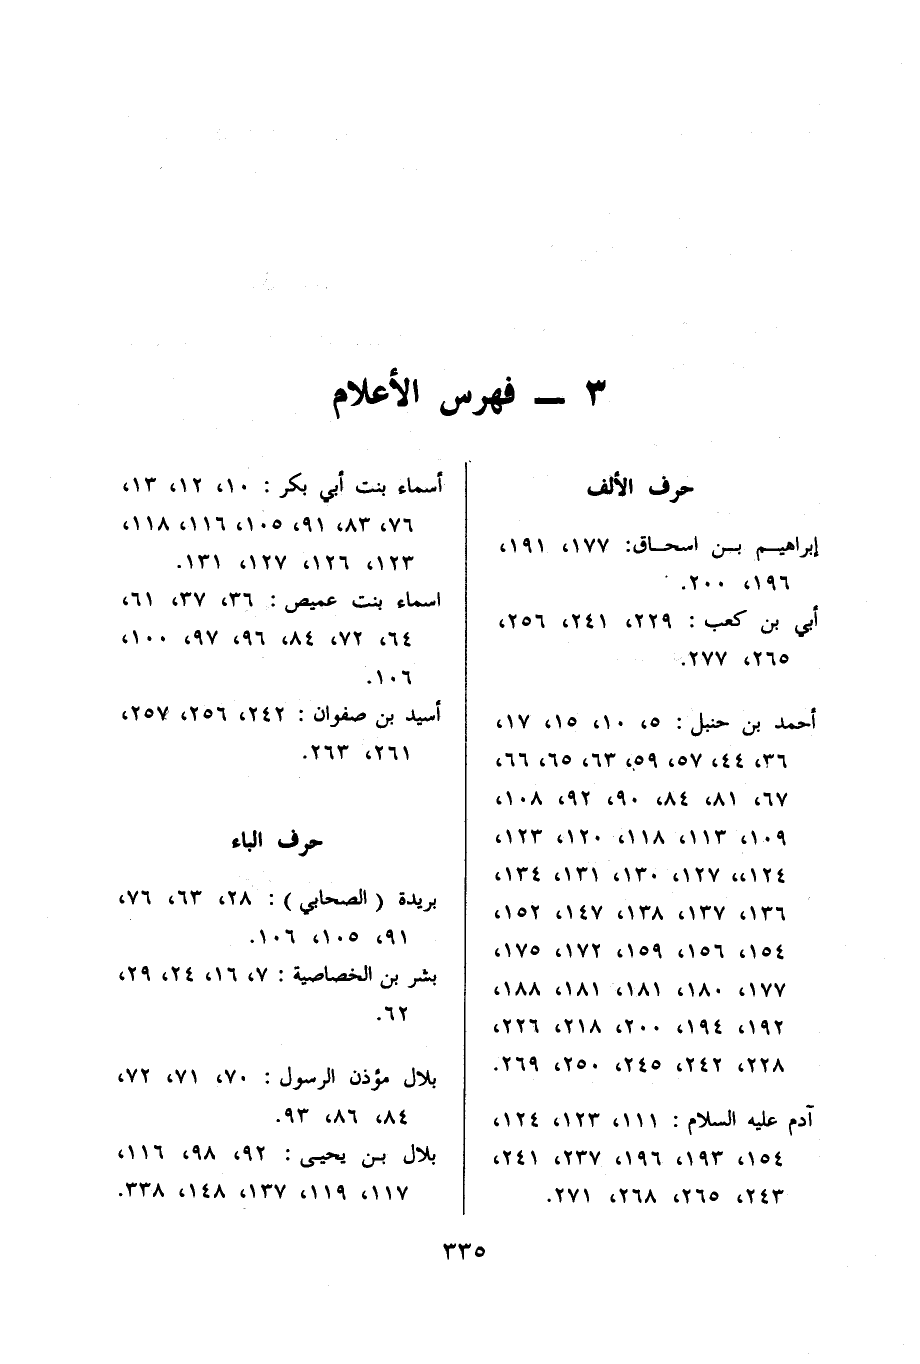 ٣ ــ فهرس الأعلام
حرف الألف
إبراهيــم بــن اسحــاق: ١٧٧، ١٩١،
١٩٦، ٢٠٠.
أبي بن كعب : ٢٢٩، ٢٤١، ٢٥٦،
٢٦٥، ٢٧٧.
أحمد بن حنبل : ٥، ١٠، ١٥، ١٧،
٣٦، ٤٤، ٥٧، ٥٩، ٦٣، ٦٥، ٦٦،
٦٧، ٨١، ٨٤، ٩٠، ٩٢، ١٠٨،
١٠٩، ١١٣، ١١٨، ١٢٠، ١٢٣،
١٢٤،، ١٢٧، ١٣٠، ١٣١، ١٣٤،
١٣٦، ١٣٧، ١٣٨، ١٤٧، ١٥٢،
١٥٤، ١٥٦، ١٥٩، ١٧٢، ١٧٥،
١٧٧، ١٨٠، ١٨١، ١٨١، ١٨٨،
١٩٢، ١٩٤، ٢٠٠، ٢١٨، ٢٢٦،
٢٢٨، ٢٤٢، ٢٤٥، ٢٥٠، ٢٦٩.
آدم عليه السلام : ١١١، ١٢٣، ١٢٤،
١٥٤، ١٩٣، ١٩٦، ٢٣٧، ٢٤١،
٢٤٣، ٢٦٥، ٢٦٨، ٢٧١.
أسماء بنت أبي بكر : ١٠، ١٢، ١٣،
٧٦، ٨٣، ٩١، ١٠٥، ١١٦، ١١٨،
١٢٣، ١٢٦، ١٢٧، ١٣١.
اسماء بنت عميص : ٣٦، ٣٧، ٦١،
٦٤، ٧٢، ٨٤، ٩٦، ٩٧، ١٠٠،
١٠٦.
أسيد بن صفوان : ٢٤٢، ٢٥٦، ٢٥٧،
٢٦١، ٢٦٣.
حرف الباء
بريدة ( الصحابي ) : ٢٨، ٦٣، ٧٦،
٩١، ١٠٥، ١٠٦.
بشر بن الخصاصية : ٧، ١٦، ٢٤، ٢٩،
٦٢.
بلال مؤذن الرسول : ٧٠، ٧١، ٧٢،
٨٤، ٨٦، ٩٣.
بلال بـن يحيـى : ٩٢، ٩٨، ١١٦،
١١٧، ١١٩، ١٣٧، ١٤٨، ٣٣٨.
٣٣٥